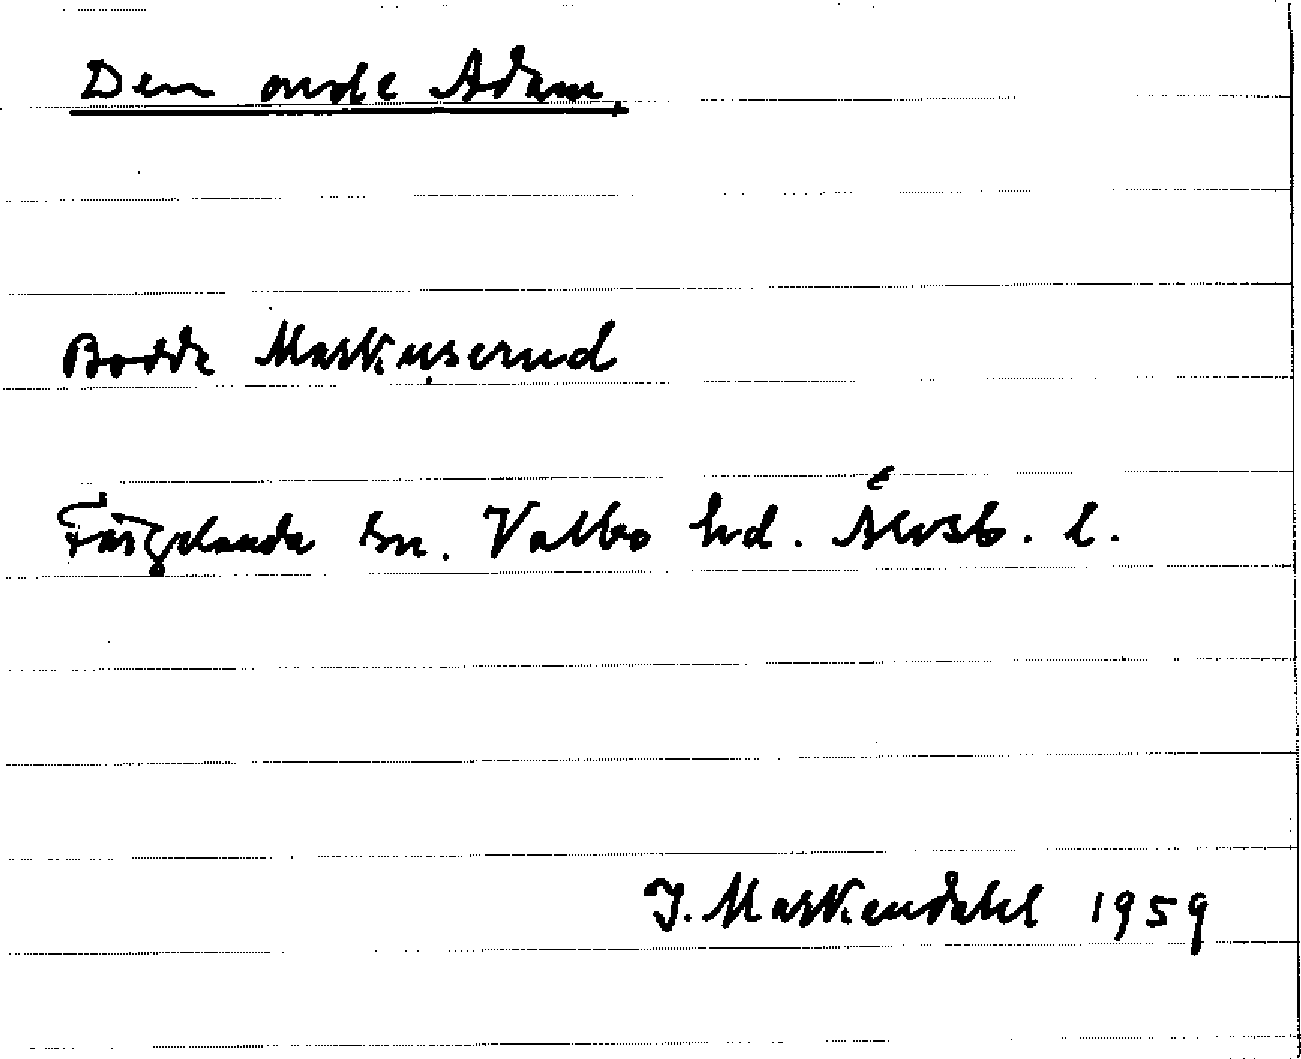 Den onde Adam.
Bodde Maskinserud
Färgelanda sn. Valbo hd. Älvsb. l.
J. Maskendahl 1959